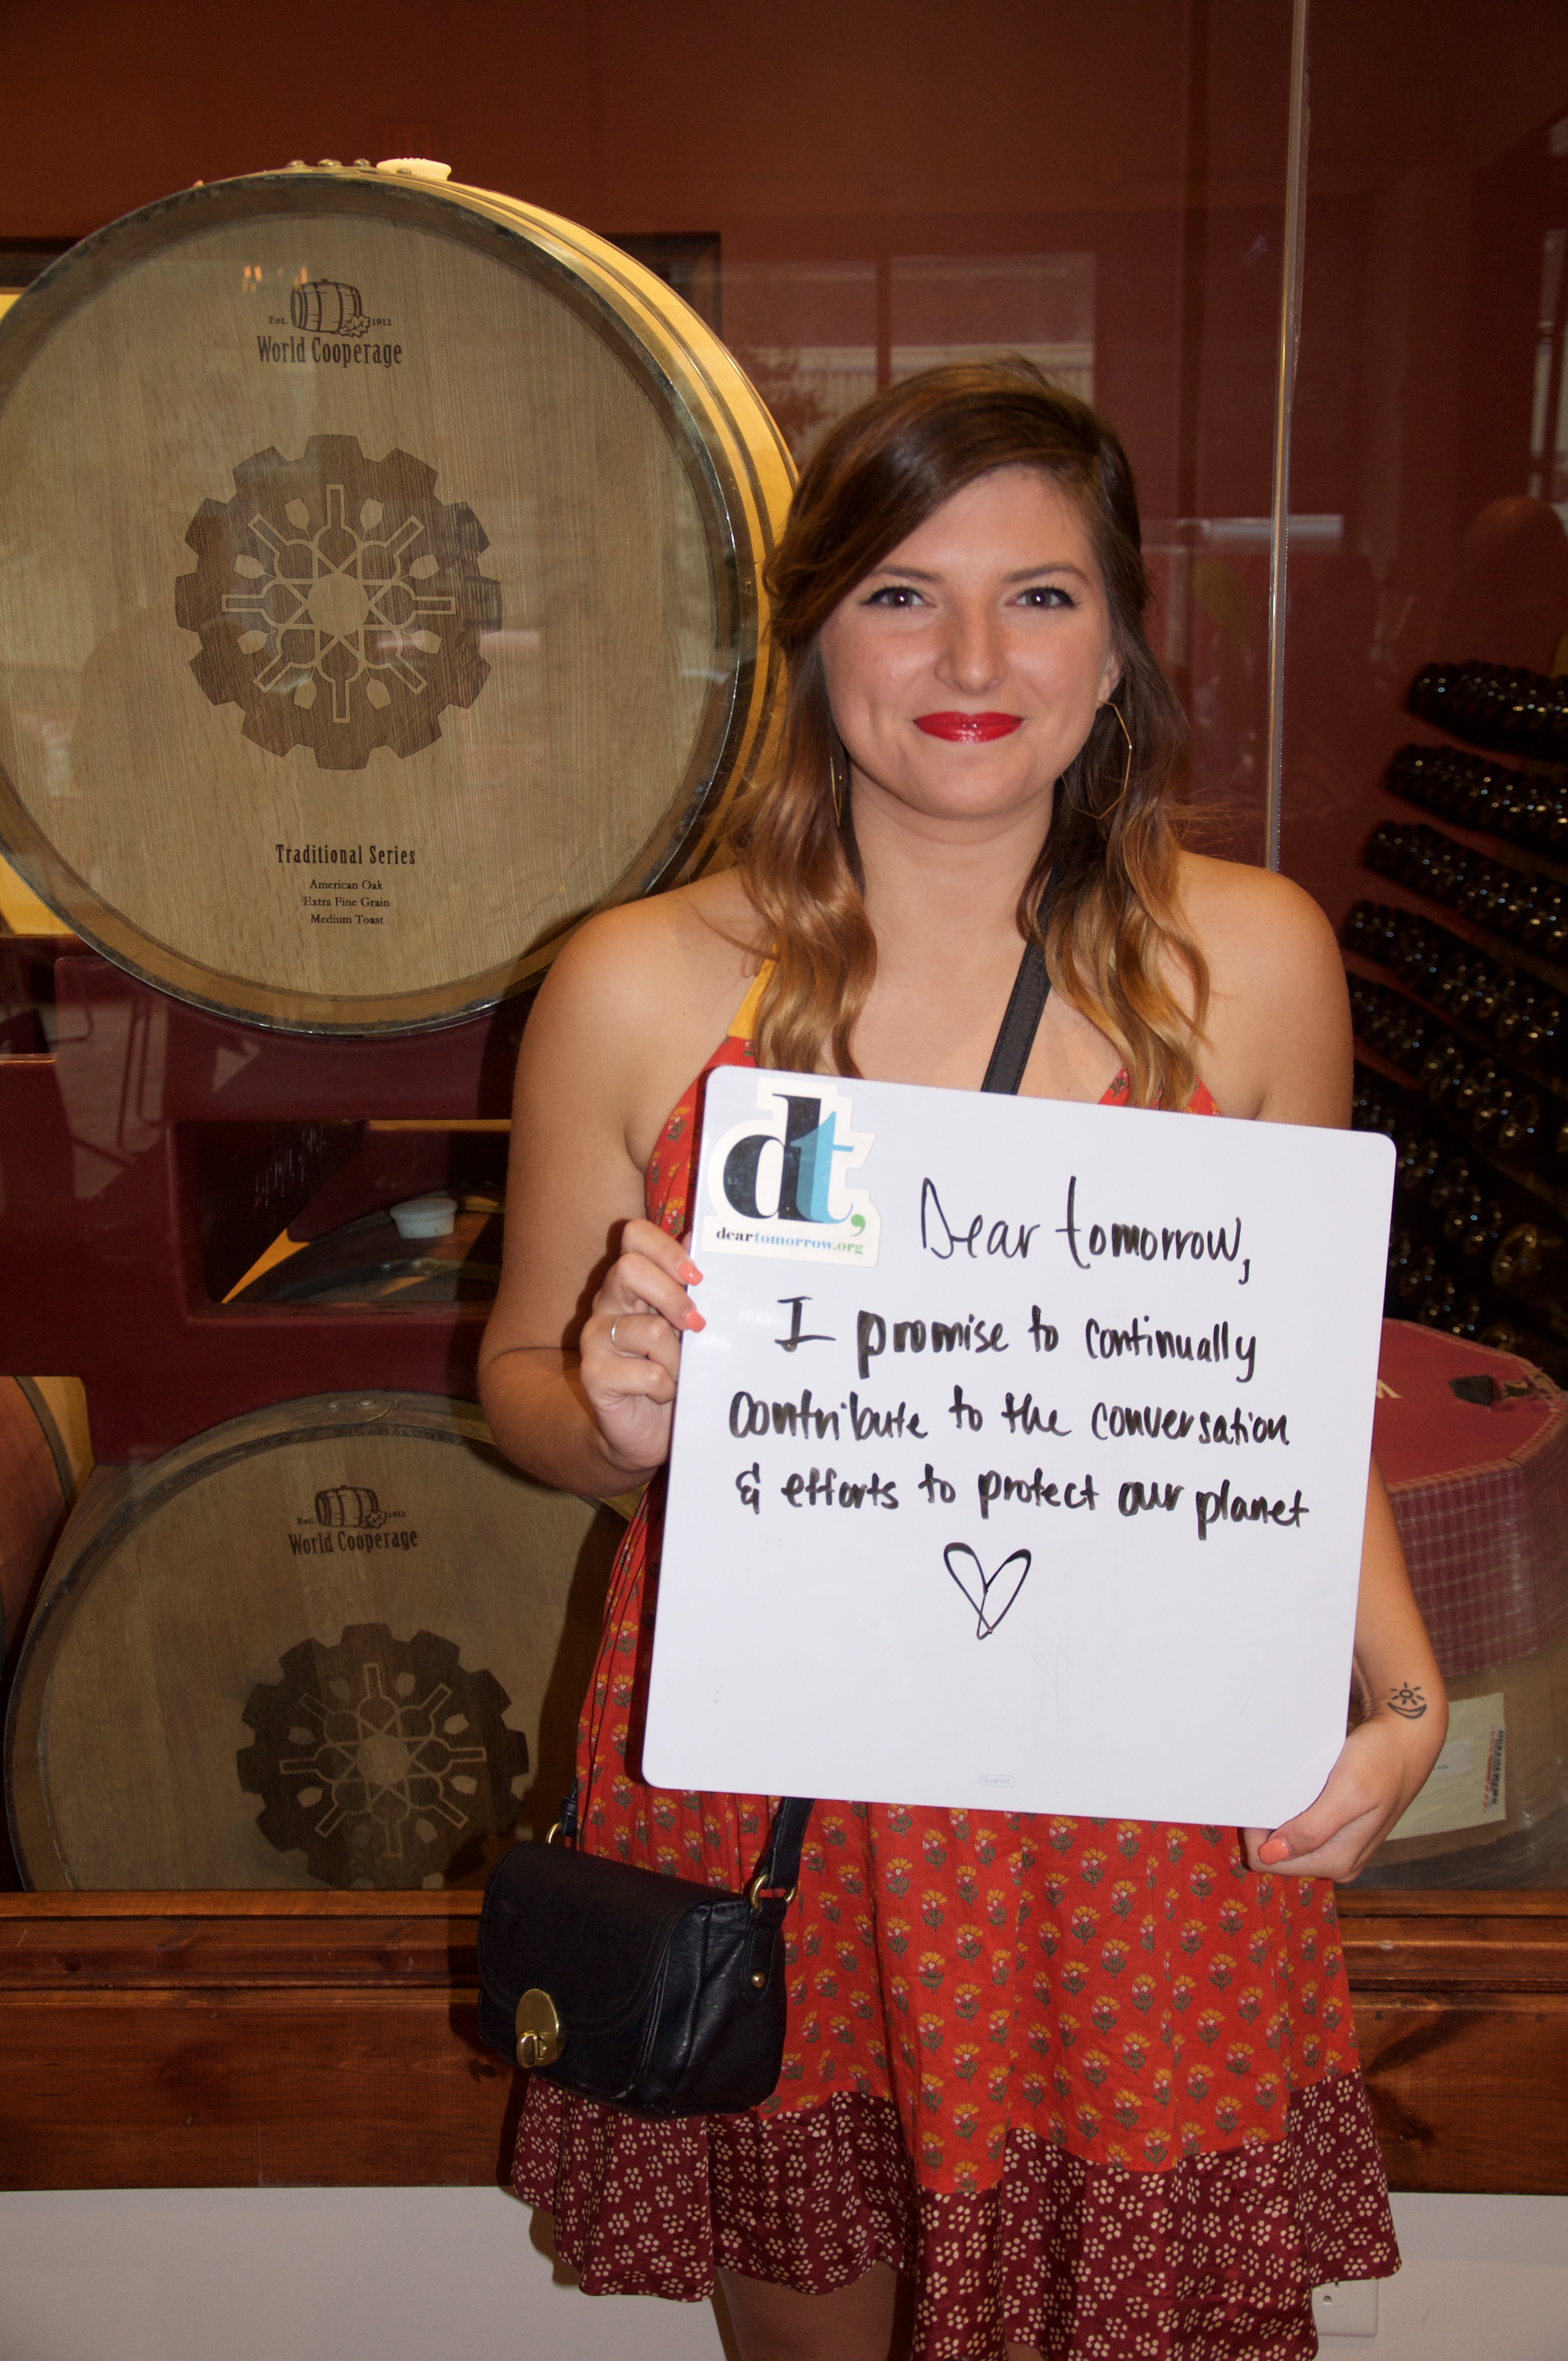 Est. 1912
World Cooperage
Traditional Series
American Oak
Extra Fine Grain
Medium Toast
dt,
deartomorrow.org
Dear tomorrow,
I promise to continually
contribute to the conversation
& efforts to protect our planet
Quartet
Est. 1912
World Cooperage